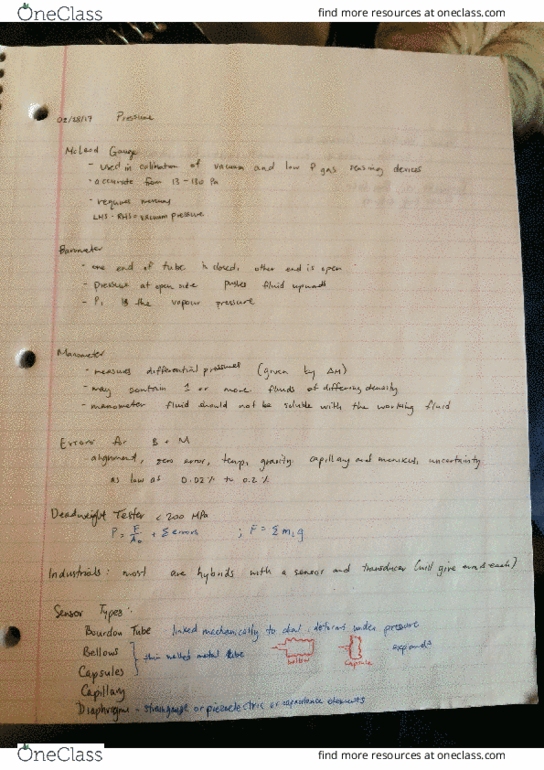 OneClass
find more resources at oneclass.com
02/28/17 Pressure
McLeod Gauge
- used in calibration of vacuum and low P gas sensing devices
- accurate from 13-130 Pa
- requires mercury
LHS - RHS = vacuum pressure
Barometer
- one end of tube is closed, other end is open
- pressure at open side pushes fluid upward
- P, is the vapour pressure
Manometer
- measures differential pressures (given by ΔH)
- may contain 1 or more fluids of differing density
- manometer fluid should not be soluble with the working fluid
Errors for B + M
- alignment, zero error, temp, gravity, capillary and meniscus, uncertainty
as low as 0.02% to 0.2%
Deadweight Tester < 200 MPa
P = F/An + Σ errors ; F = Σ mig
Industrials: most are hybrids with a sensor and transducer (will give each)
Sensor Types:
Bourdon Tube linked mechanically to dial, deforms under pressure
Bellows } thin walled metal tube bellow capsule expands
Capsules
Capillary
Diaphragms - strain gauge or piezoelectric or capacitance elements
OneClass
find more resources at oneclass.com